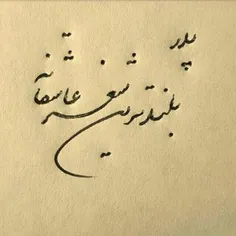 پدر
بلندترین شعر عاشقانه